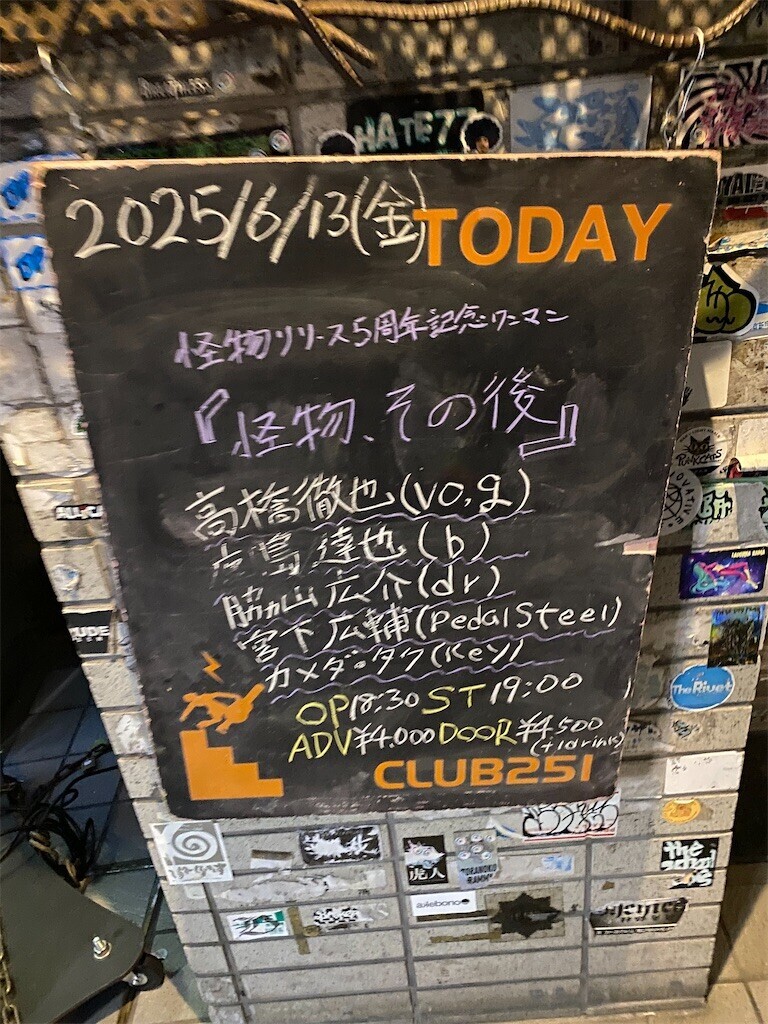 HATE77
2025/6/13(金)TODAY
怪物リリース5周年記念ワンマン
『怪物、その後』
高橋徹也(vo,g)
鹿島達也(b)
脇山広介(dr)
宮下広輔(Pedal Steel)
カメダタク(Key)
OP18:30 ST19:00
ADV¥4.000 DOOR¥4.500
(+1drink)
CLUB251
PUNKCATS
The Rivet
虎人
akebono